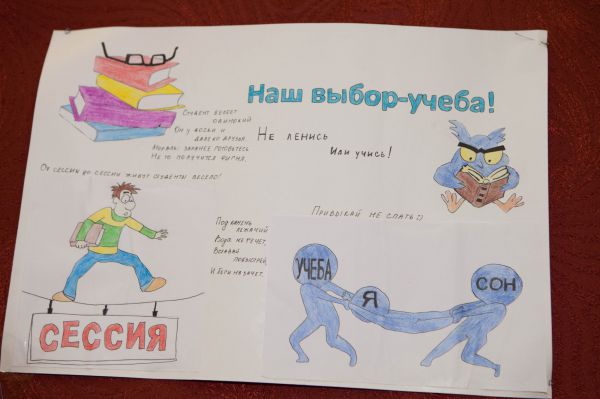 Наш выбор-учеба!
Студент белеет
одинокий
Он у доски и
далеко друзья
Мораль: заранее готовьтесь
Не то получится фигня.
Не ленись
Или учись!
От сессии до сессии живут студенты весело!
Привыкай не спать :)
Под камень
лежачий
Вода не течет,
побыстрей,
И бери зачет.
СЕССИЯ
УЧЕБА
Я
СОН